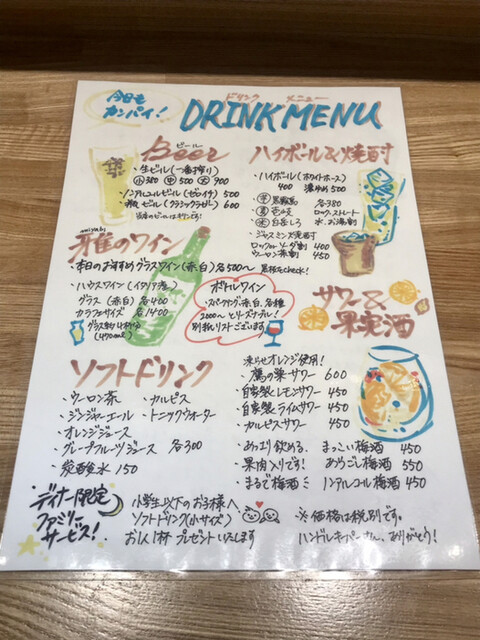 今日も
カンパイ！
ドリンク メニュー
DRINK MENU
ビール
Beer
・生ビール（一番搾り）
小380 中500 大900
・ノンアルコールビール（ゼロイチ）500
・瓶ビール（クラシックラガー）600
当店のビールはキリンです！
ハイボール&焼酎
・ハイボール（ホワイトホース）
400 濃いめ 500
芋 黒霧島
麦 壱岐
米 白岳しろ
各380
ロック・ストレート
水、お湯割
・ジャスミン焼酎
ロックorソーダ割 400
ウーロン茶割 450
miyabi
雅のワイン
・本日のおすすめグラスワイン（赤・白）各500〜
黒板をcheck！
・ハウスワイン（イタリア産）
グラス（赤・白）各400
カラフェサイズ 各1400
グラス約4杯分
（470ml）
ボトルワイン
・スパークリング、赤、白、各種
2000〜とリーズナブル！
別紙リストございます
サワー&
果実酒
ソフトドリンク
・ウーロン茶 ・カルピス
・ジンジャーエール ・トニックウォーター
・オレンジジュース
・グレープフルーツジュース 各300
・炭酸水 150
凍らせオレンジ使用！
・鷹の巣サワー 600
・自家製レモンサワー 450
・自家製ライムサワー 450
・カルピスサワー 450
・あっさり飲める、まっこい梅酒 450
・果肉入りです！ あらごし梅酒 550
・まるで梅酒ミ ノンアルコール梅酒 450
ディナー限定
ファミリー
サービス！
小学生以下のお子様へ
ソフトドリンク（小サイズ）
お1人1杯プレゼントいたします
※価格は税別です。
ハンドルキーパーさん、ありがとう！